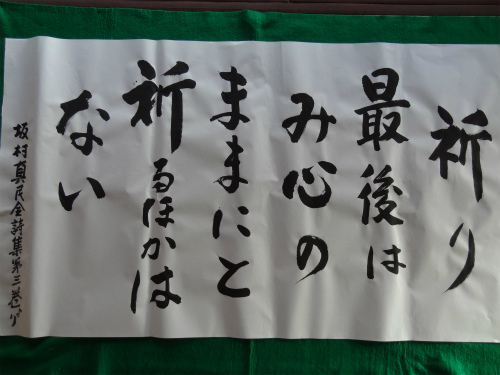 祈り
最後は
み心の
ままにと
祈るほかは
ない
坂村真民全詩集第三巻より